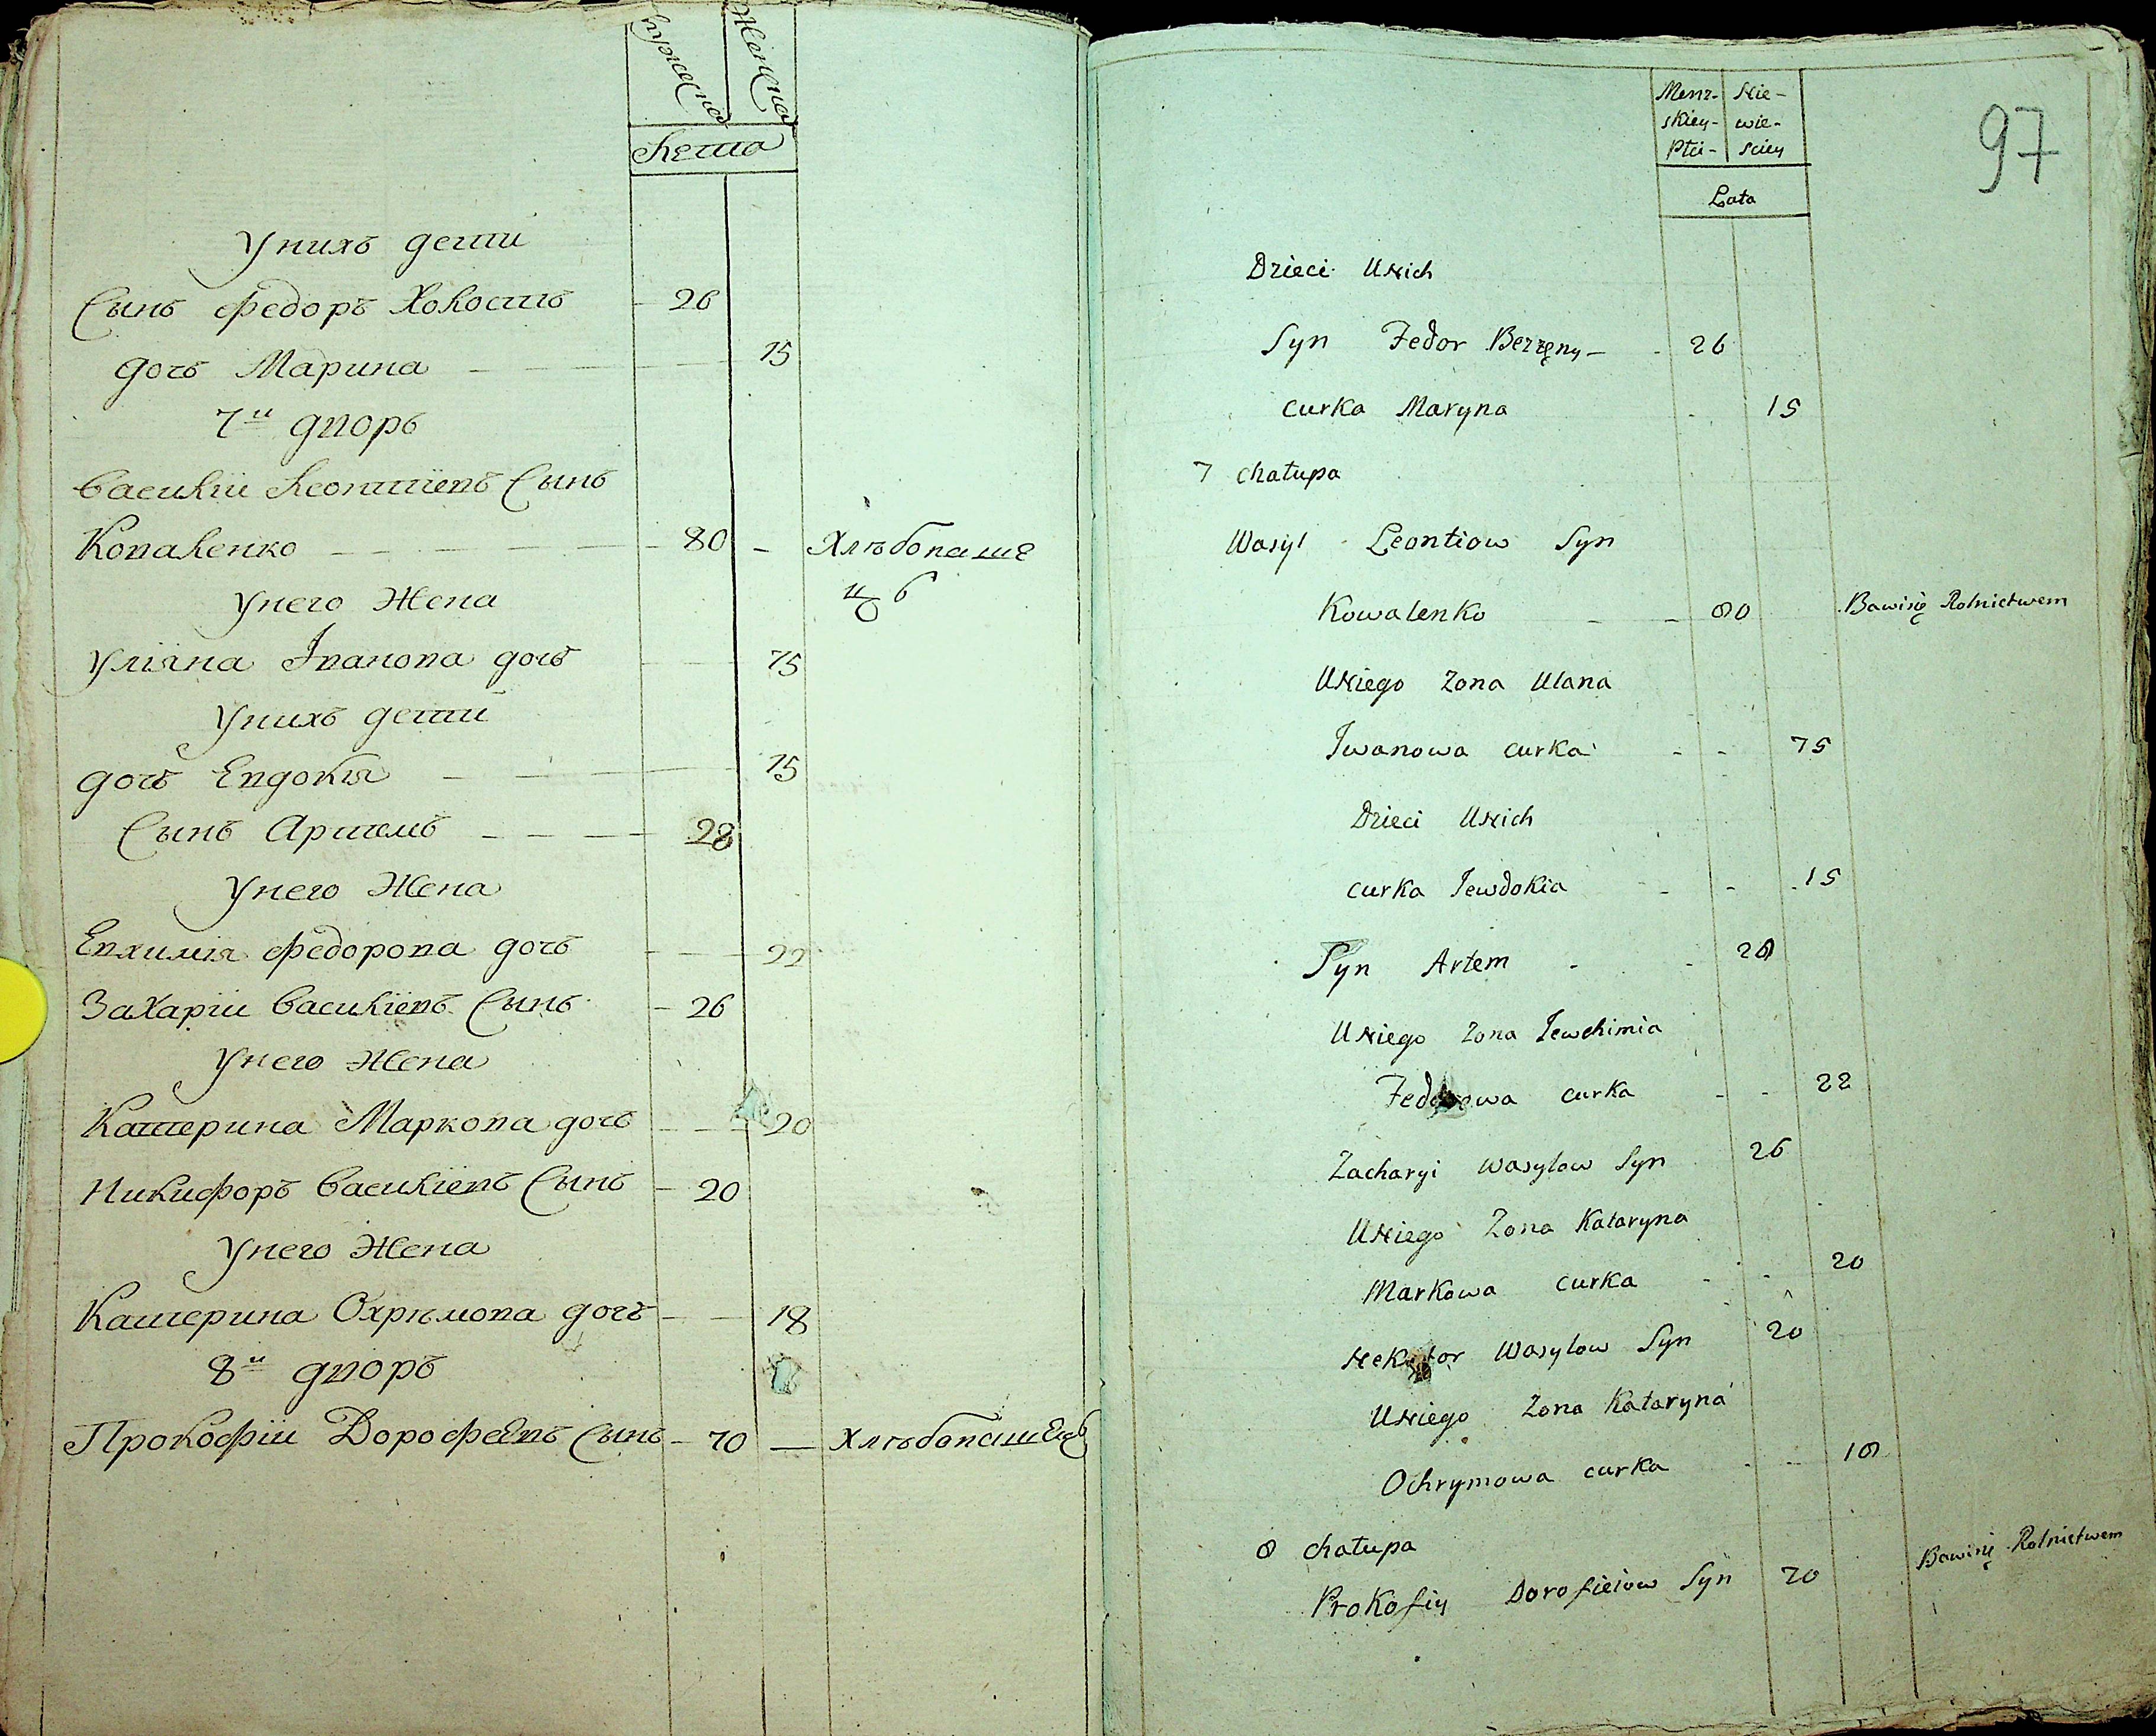 Мужеска
Женска
Лета
У нихъ дети
Сынъ Федоръ Холостъ 26
дочь Марина 15
7й дворъ
Василий Леонтиевъ Сынъ
Коваленко 80 Хлѣбопаше
цъ
У него Жена
Улияна Іванова дочь 75
У нихъ дети
дочь Евдокия 15
Сынъ Артемъ 28
У него Жена
Евхимия Федорова дочь 22
Захарий Василиевъ Сынъ 26
У него Жена
Катерина Маркова дочь 20
Никифоръ Василиевъ Сынъ 20
У него Жена
Катерина Охрѣмова дочь 18
8й дворъ
Прокофий Дорофеевъ Сынъ 70 Хлѣбопашецъ
Menz- Nie-
skiey- wie-
Płci- sciey
Lata
97
Dzieci Unich
Syn Fedor Bezżęny 26
curka Maryna 15
7 chałupa
Wasyl Leontiow Syn
Kowalenko 80 Bawisię Rolnictwem
Uniego Zona Ulana
Iwanowa curka 75
Dzieci Unich
curka Iewdokia 15
Syn Artem 28
Uniego Zona Iewchimia
Fedorowa curka 22
Zacharyi Wasylow Syn 26
Uniego Zona Kataryna
Markowa curka 20
Wasylow Syn 20
Uniego Zona Kataryna
Ochrymowa curka 18
8 chałupa
Prokofiy Dorofieiow Syn 70 Bawisię Rolnictwem